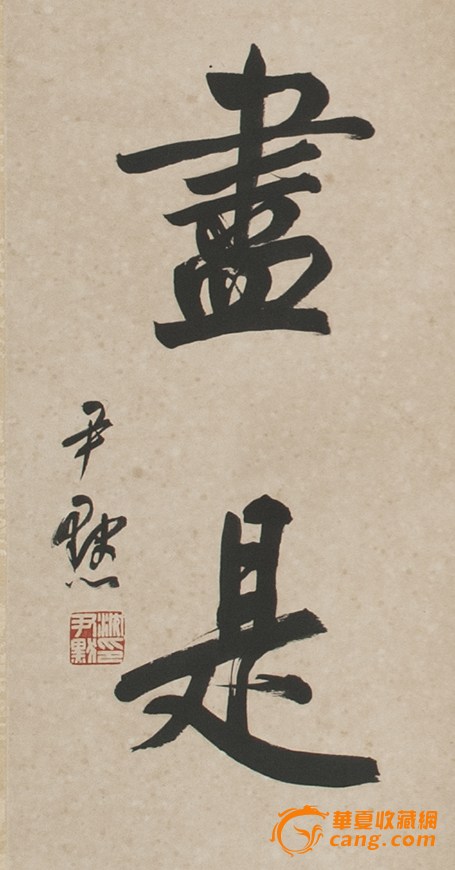 盡是
尹默
沈尹默印
華夏收藏網
cang.com